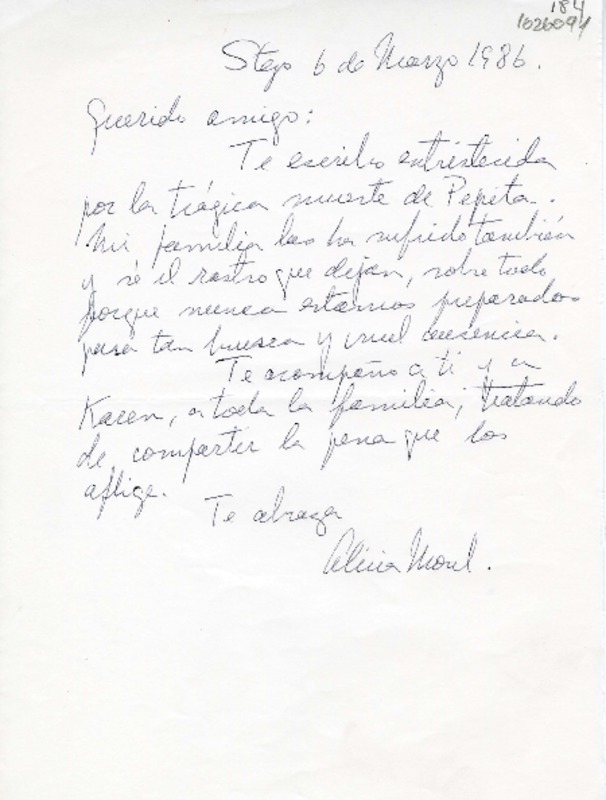 184
1026094
Stgo 6 de Marzo 1986.
Querido amigo:
Te escribo entristecida
por la trágica muerte de Pepita.
Mi familia las ha sufrido también
y sé el rastro que dejan, sobre todo
porque nunca estamos preparados
para tan brusca y cruel ausencia.
Te acompaño a ti y a
Karen, a toda la familia, tratando
de compartir la pena que los
aflige.
Te abraza
Alicia Morel.